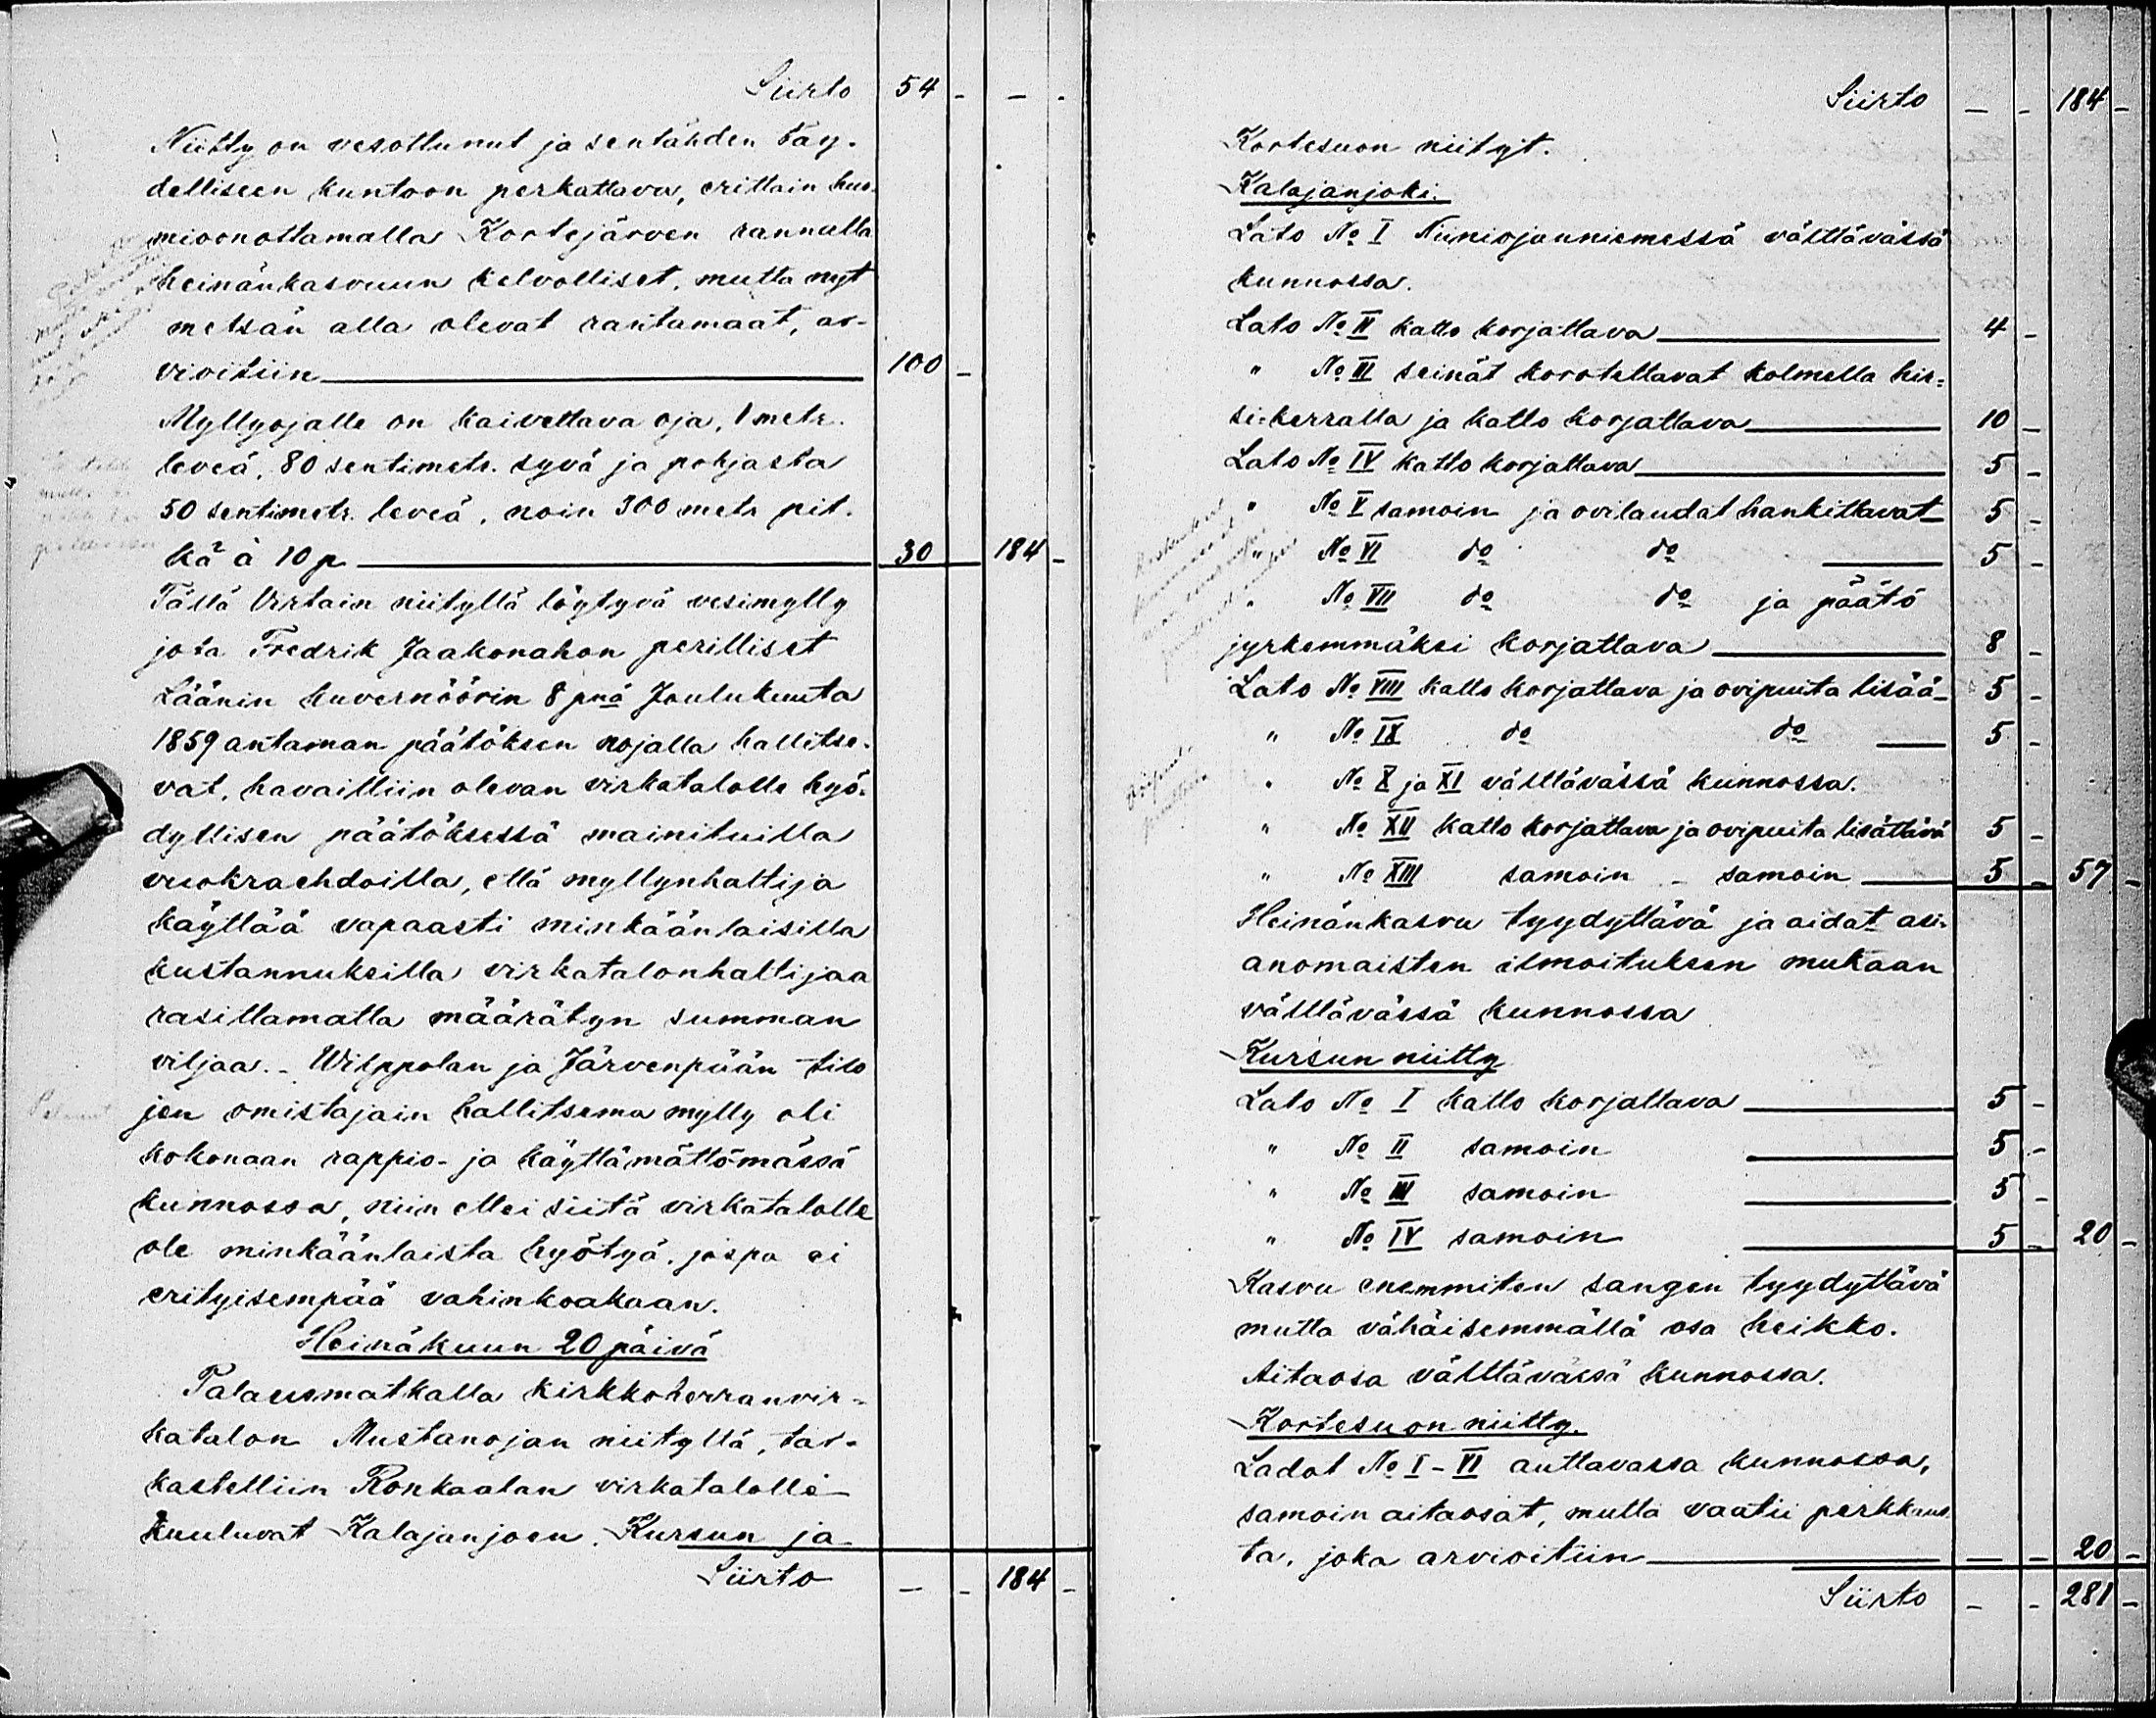 Siirto 54 - - -
Niitty on vesottunut ja sentähden täy-
delliseen kuntoon perkattava, erittäin huo-
mioonottamalla Kortejärven rannalla
heinänkasvuun kelvolliset, mutta nyt
metsän alla olevat rantamaat, ar-
vioitiin 100 -
Myllyojalle on kaivettava oja, 1 metr.
leveä, 80 sentimetr. syvä ja pohjasta
50 sentimetr. leveä, noin 300 metr pit-
kä à 10 p 30 184 -
Tällä Virtain niityllä löytyvä vesimylly
jota Fredrik Jaakonahon perilliset
Läänin kuvernöörin 8 pnä Joulukuuta
1859 antaman päätöksen nojalla hallitse-
vat, havaittiin olevan virkatalolle hyö-
dyllisen päätöksessä mainituilla
vuokraehdoilla, että myllynhaltija
käyttää vapaasti minkäänlaisilla
kustannuksilla virkatalonhaltijaa
rasittamatta määrätyn summan
viljaa. - Wilppolan ja Järvenpään tilo
jen omistajain hallitsema mylly oli
kokonaan rappio- ja käyttämättömässä
kunnossa, niin ettei siitä virkatalolle
ole minkäänlaista hyötyä, jospa ei
erityisempää vahinkoakaan.
Heinäkuun 20 päivä
Palausmatkalla kirkkoherranvir-
katalon Mustanojan niityltä, tar-
kastettiin Ronkaalan virkatalolle
kuuluvat Kalajanjoen, Kursun ja
Siirto - - 184 -
Siirto - - 184 -
Kortesuon niityt.
Kalajanjoki.
Lato No I Niiniojanniemessä välttävässä
kunnossa.
Lato No II katto korjattava 4 -
" No III seinät korotettavat kolmella hir-
sikerralla ja katto korjattava 10 -
Lato No IV katto korjattava 5 -
" No V samoin ja ovilaudat hankittavat 5 -
" No VI do do 5 -
" No VII do do ja päätö
jyrkemmäksi korjattava 8 -
Lato No VIII katto korjattava ja ovipuita lisää 5 -
" No IX do do 5 -
" No X ja XI välttävässä kunnossa.
" No XII katto korjattava ja ovipuita lisättävä 5 -
" No XIII samoin - samoin 5 - 57 -
Heinänkasvu tyydyttävä ja aidat asi-
anomaisten ilmoituksen mukaan
välttävässä kunnossa
Kursun niitty
Lato No I katto korjattava 5 -
" No II samoin 5 -
" No III samoin 5 -
" No IV samoin 5 - 20 -
Kasvu enemmiten sangen tyydyttävä
mutta vähäisemmällä osa heikko.
Aitaosa välttävässä kunnossa.
Kortesuon niitty.
Ladot No I - VI auttavassa kunnossa,
samoin aitaosat, mutta vaatii perkkaus-
ta, joka arvioitiin - - 20 -
Siirto - - 281 -